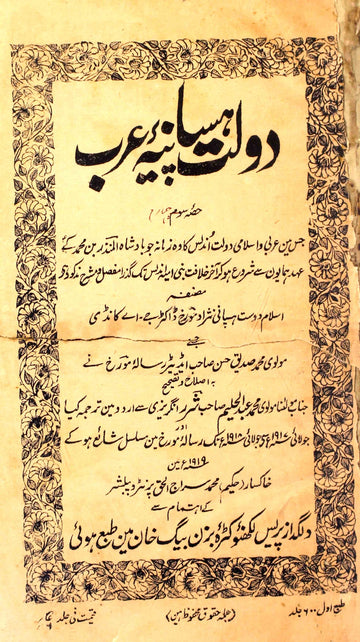 دولت ہسپانیۂ عرب
حصہ سوم
جس میں عربی و اسلامی دولت اُندلس کا وہ زمانہ جو بادشاہ المنذر بن محمد کے
عہد ہمایون سے شروع ہو کر آخر خلافت بنی امیہ اندلس تک گذرا مفصل و مشرح مذکور ہے
مصنفہ
اسلام دوست ہسپانی نژاد مورخ ڈاکٹر جے۔ اے کانڈی
جسے
مولوی محمد صدیق حسن صاحب اڈیٹر رسالہ مورخ نے
بہ اصلاح و تصحیح
جناب مولٰنا مولوی محمد عبدالحلیم صاحب شرر انگریزی سے اردو مین ترجمہ کیا
جولائی ۱۹۱۷ء سے جولائی ۱۹۱۸ء تک رسالہ مورخ مین مسلسل شائع ہو کے
۱۹۱۹ء مین
خاکسار (حکیم) محمد سراج الحق پرنٹر و پبلشر
کے اہتمام سے
دلگداز پریس لکھنؤ کٹرہ بزن بیگ خان مین طبع ہوئی
طبع اول ۶۰۰ جلد
(جملہ حقوق محفوظ ہین)
قیمت فی جلد